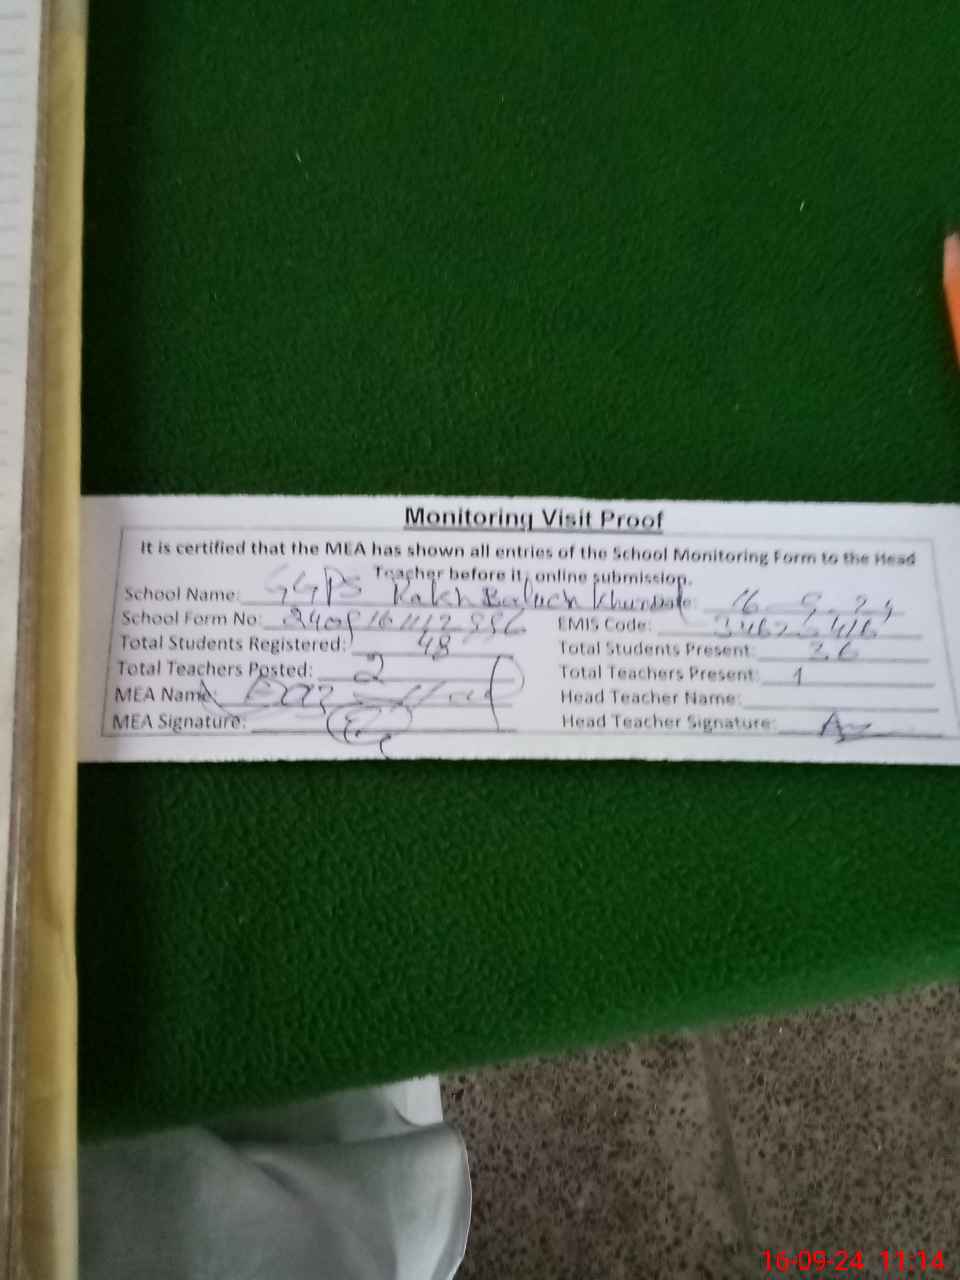 Monitoring Visit Proof
It is certified that the MEA has shown all entries of the School Monitoring Form to the Head
Teacher before it; online submission.
School Name: GGPS Rakh Baluch Date: 16-9-24
School Form No: EMIS Code:
Total Students Registered: 48 Total Students Present: 36
Total Teachers Posted: 2 Total Teachers Present: 1
MEA Name: Head Teacher Name:
MEA Signature: Head Teacher Signature:
16-09-24 11:14